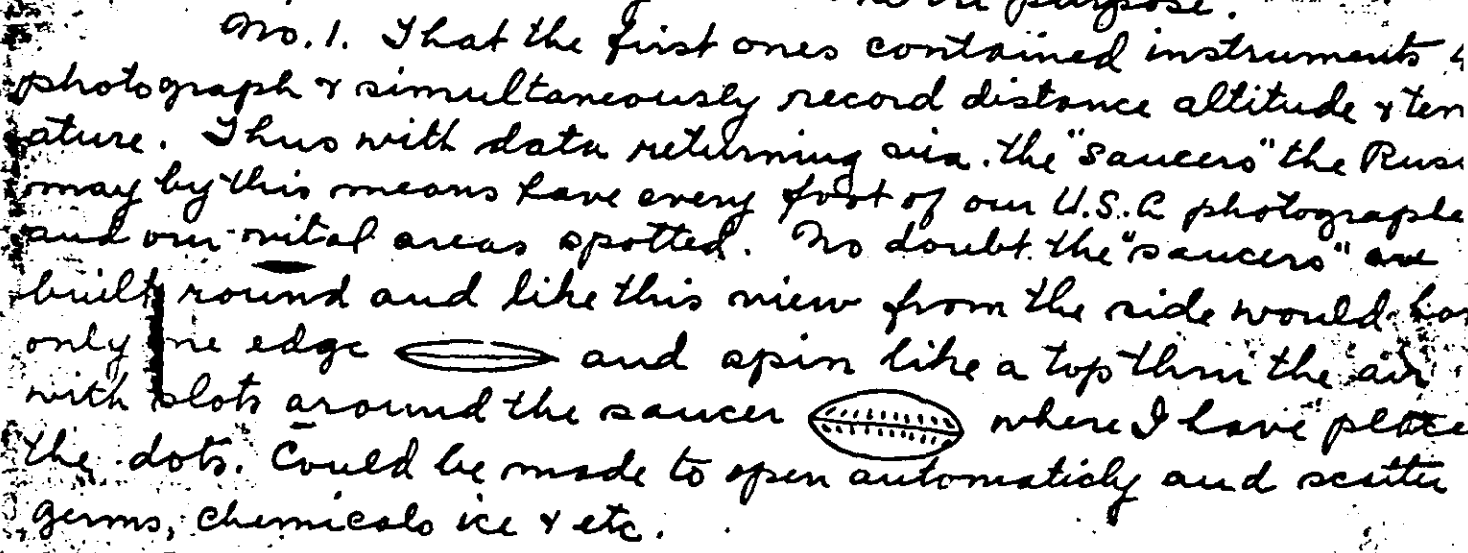 purpose.
No. 1. That the first ones contained instruments
photograph & simultaneously record distance altitude & tem
ature. Thus with data returning via. the "saucers" the Russ
may by this means have every foot of our U.S.A photographe
and our vital areas spotted. No doubt the "saucers" are
built round and like this view from the side would ha
only one edge and spin like a top thru the air
with slots around the saucer where I have place
the dots. Could be made to open automaticly and scatter
germs, chemicals ice & etc.